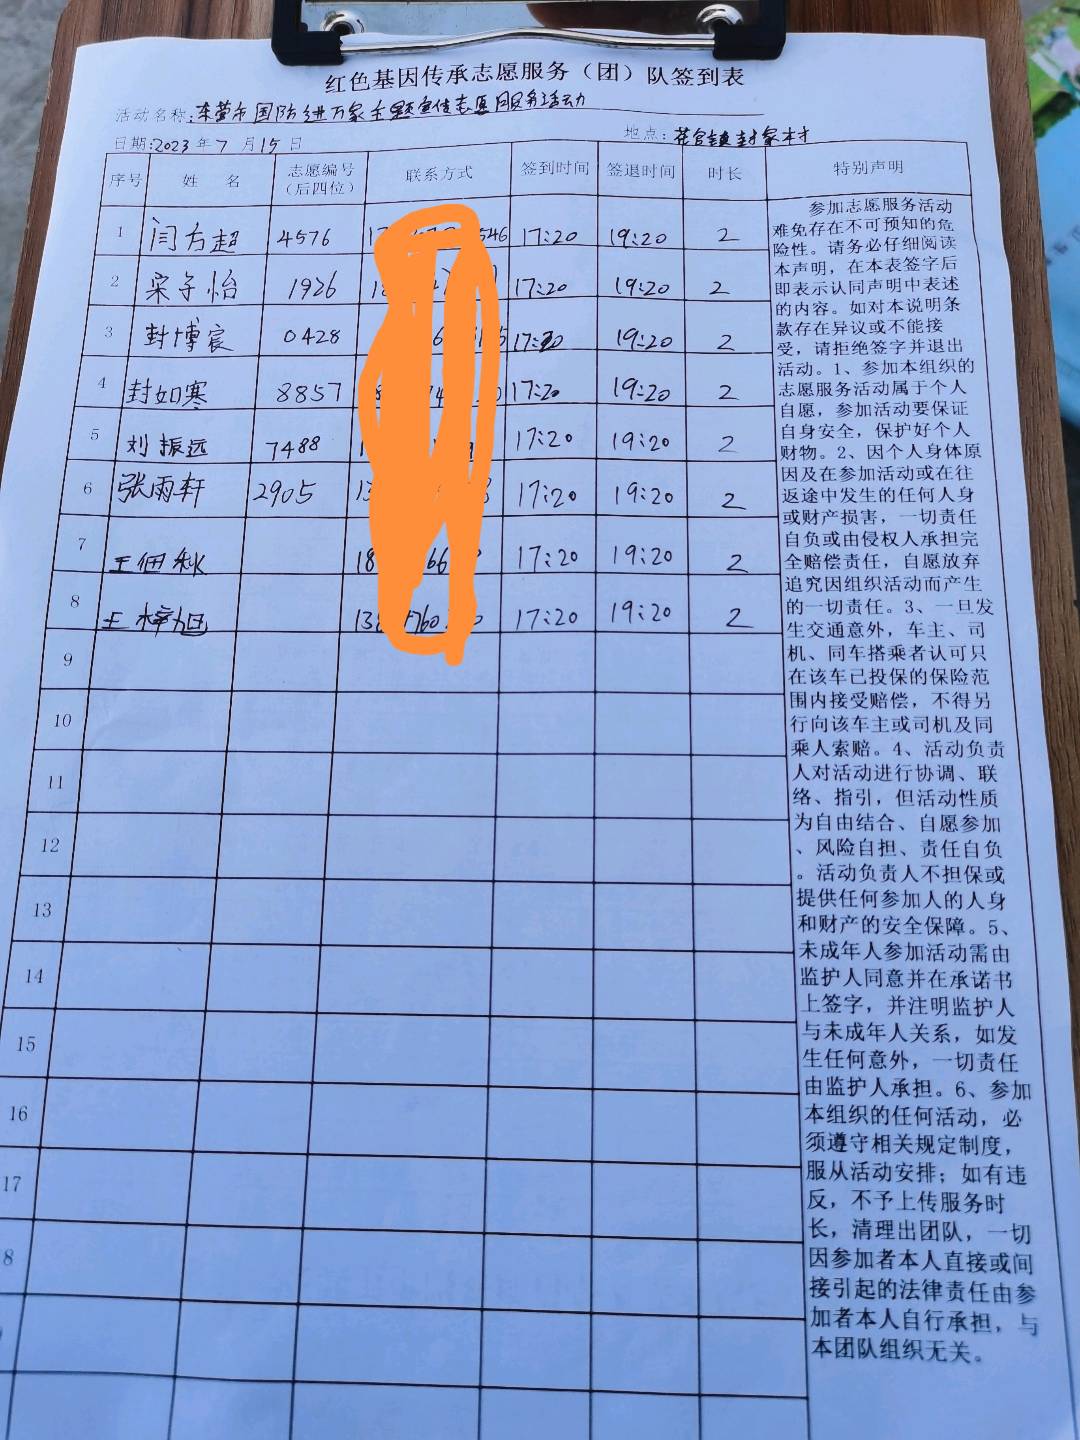 红色基因传承志愿服务（团）队签到表
活动名称:东营市国防进万家主题宣传志愿服务活动
日期:2023年7月15日 地点:花官镇封家村
序号 姓名 志愿编号（后四位） 联系方式 签到时间 签退时间 时长 特别声明
1 闫方超 4576 546 17:20 19:20 2
2 宋子怡 1926 17:20 19:20 2
3 封博宸 0428 17:20 19:20 2
4 封如寒 8857 17:20 19:20 2
5 刘振远 7488 17:20 19:20 2
6 张雨轩 2905 13 17:20 19:20 2
7 王佃秋 18 66 17:20 19:20 2
8 王梓旭 138 760 17:20 19:20 2
9
10
11
12
13
14
15
16
17
8
参加志愿服务活动
难免存在不可预知的危
险性。请务必仔细阅读
本声明，在本表签字后
即表示认同声明中表述
的内容。如对本说明条
款存在异议或不能接
受，请拒绝签字并退出
活动。1、参加本组织的
志愿服务活动属于个人
自愿，参加活动要保证
自身安全，保护好个人
财物。2、因个人身体原
因及在参加活动或在往
返途中发生的任何人身
或财产损害，一切责任
自负或由侵权人承担完
全赔偿责任，自愿放弃
追究因组织活动而产生
的一切责任。3、一旦发
生交通意外，车主、司
机、同车搭乘者认可只
在该车已投保的保险范
围内接受赔偿，不得另
行向该车主或司机及同
乘人索赔。4、活动负责
人对活动进行协调、联
络、指引，但活动性质
为自由结合、自愿参加
、风险自担、责任自负
。活动负责人不担保或
提供任何参加人的人身
和财产的安全保障。5、
未成年人参加活动需由
监护人同意并在承诺书
上签字，并注明监护人
与未成年人关系，如发
生任何意外，一切责任
由监护人承担。6、参加
本组织的任何活动，必
须遵守相关规定制度，
服从活动安排；如有违
反，不予上传服务时
长，清理出团队，一切
因参加者本人直接或间
接引起的法律责任由参
加者本人自行承担，与
本团队组织无关。